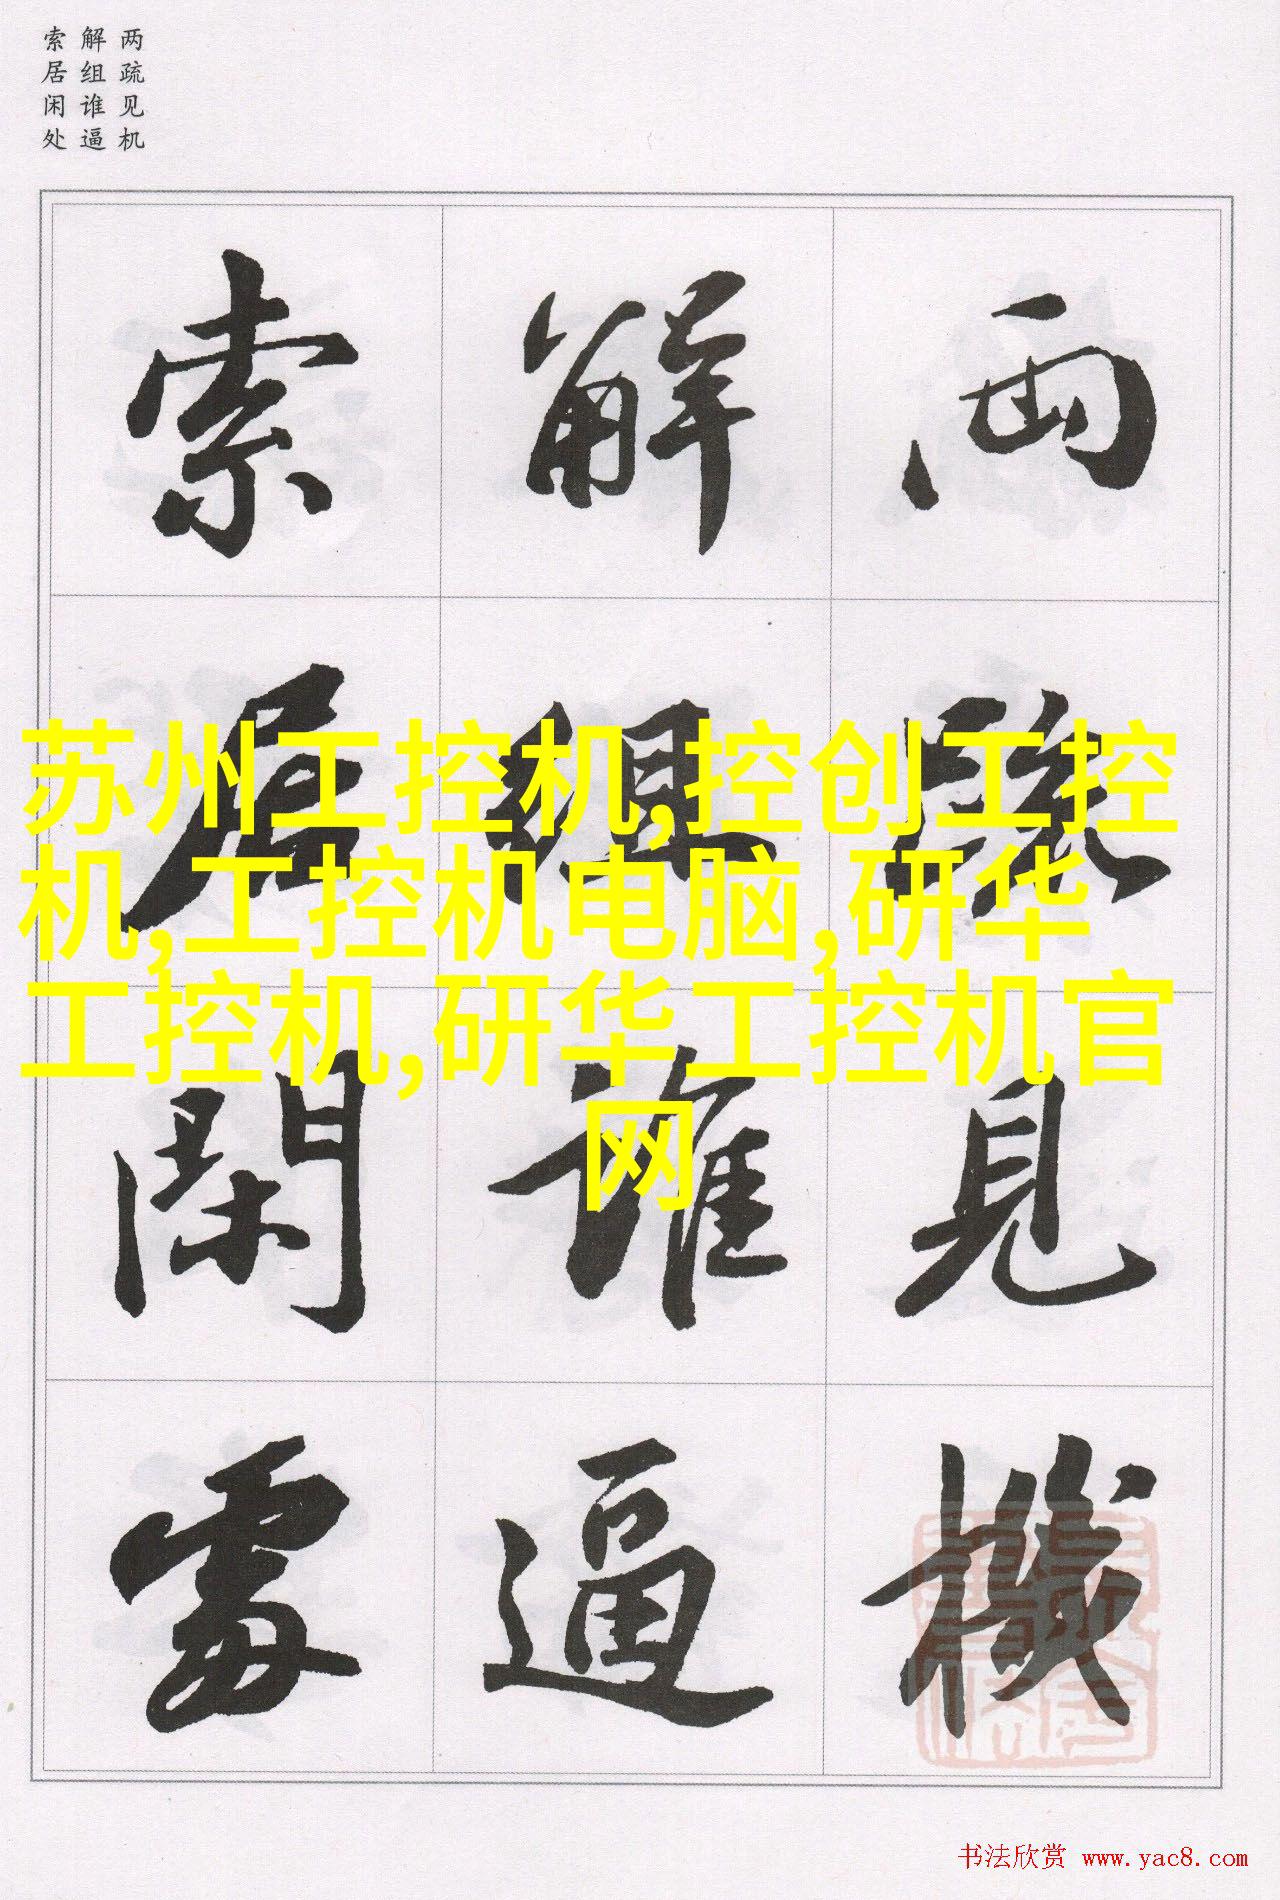 两疏见机
解组谁逼
索居闲处
兩疏見機
解組誰逼
索居閑處
苏州工控机,控创工控
机,工控机电脑,研华
工控机,研华工控机官
网
书法欣赏 www.yac8.com